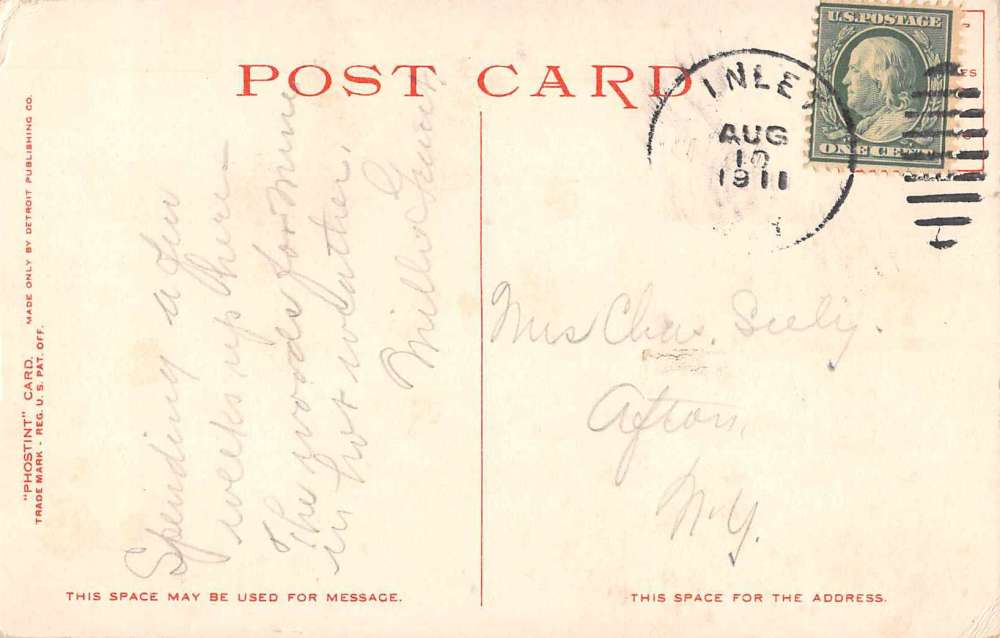 POST CARD
U.S. POSTAGE
ONE CENT
INLE
AUG
10
1911
"PHOSTINT" CARD. MADE ONLY BY DETROIT PUBLISHING CO.
TRADE MARK - REG. U. S. PAT. OFF.
Spending a few
weeks up here—
The woods for mine
in hot weather.
Millie
Mrs Chas. Seely.
Afton,
N.Y.
THIS SPACE MAY BE USED FOR MESSAGE.
THIS SPACE FOR THE ADDRESS.